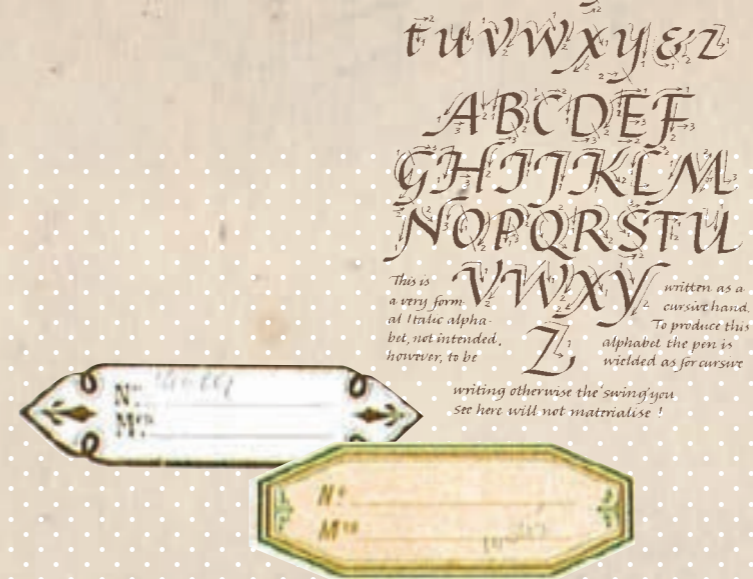 t u v w x y & z
A B C D E F
G H I J J K L M
N O P Q R S T U
V W X Y
Z
This is
a very form
al Italic alpha-
bet, not intended,
however, to be
written as a
cursive hand.
To produce this
alphabet the pen is
wielded as for cursive
writing otherwise the swing you
see here will not materialise !
No.
Mre.
No.
Mre.